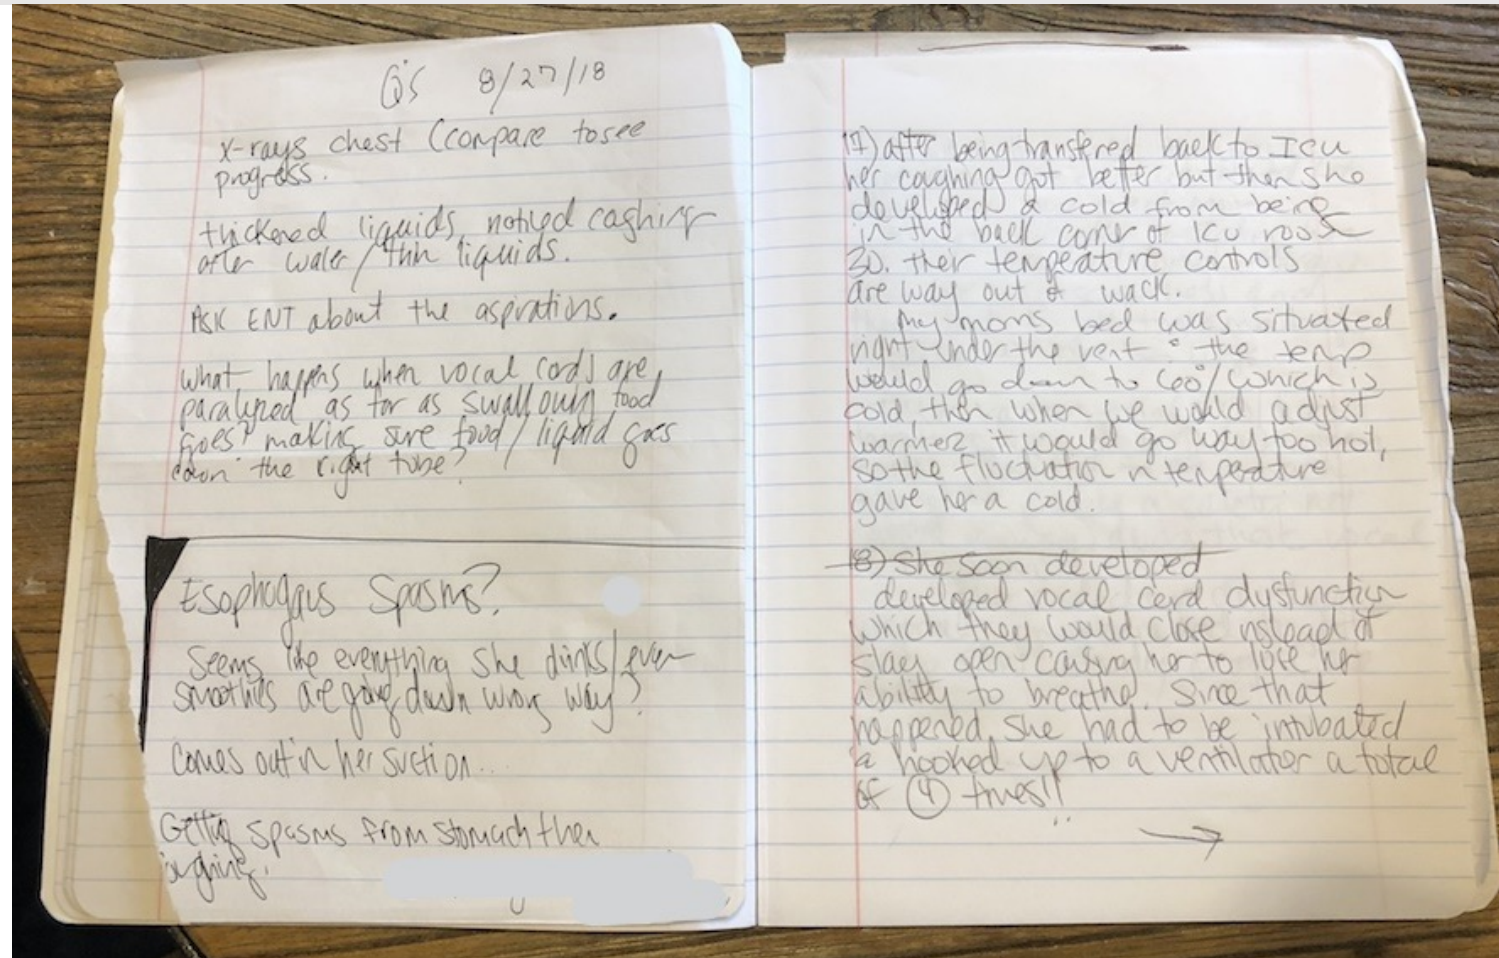 Q's 8/27/18
X-rays chest (compare to see
progress.
thickened liquids, noticed coghing
after water/thin liquids.
ASK ENT about the aspirations.
What happens when vocal cords are
paralyzed as far as swallowing food
goes? making sure food/liquid goes
down the right tube?
Esophogaus Spasms?
Seems like everything she drinks/even
smoothies are going down wrong way?
Comes out in her suction...
Getting spasms from stomach then
17) after being transfered back to ICU
her coughing got better but then she
developed a cold from being
in the back corner of ICU room
30. Ther temperature controls
are way out of wack.
My moms bed was situated
right under the vent & the temp
would go down to 60°/which is
cold, then when we would adjust
warmer it would go way too hot,
so the fluctuation in temperature
gave her a cold.
18) She soon developed
developed vocal cord dysfunction
which they would close instead of
stay open causing her to lose her
ability to breathe. Since that
happened, she had to be intubated
& hooked up to a ventilator a total
of (4) times!!